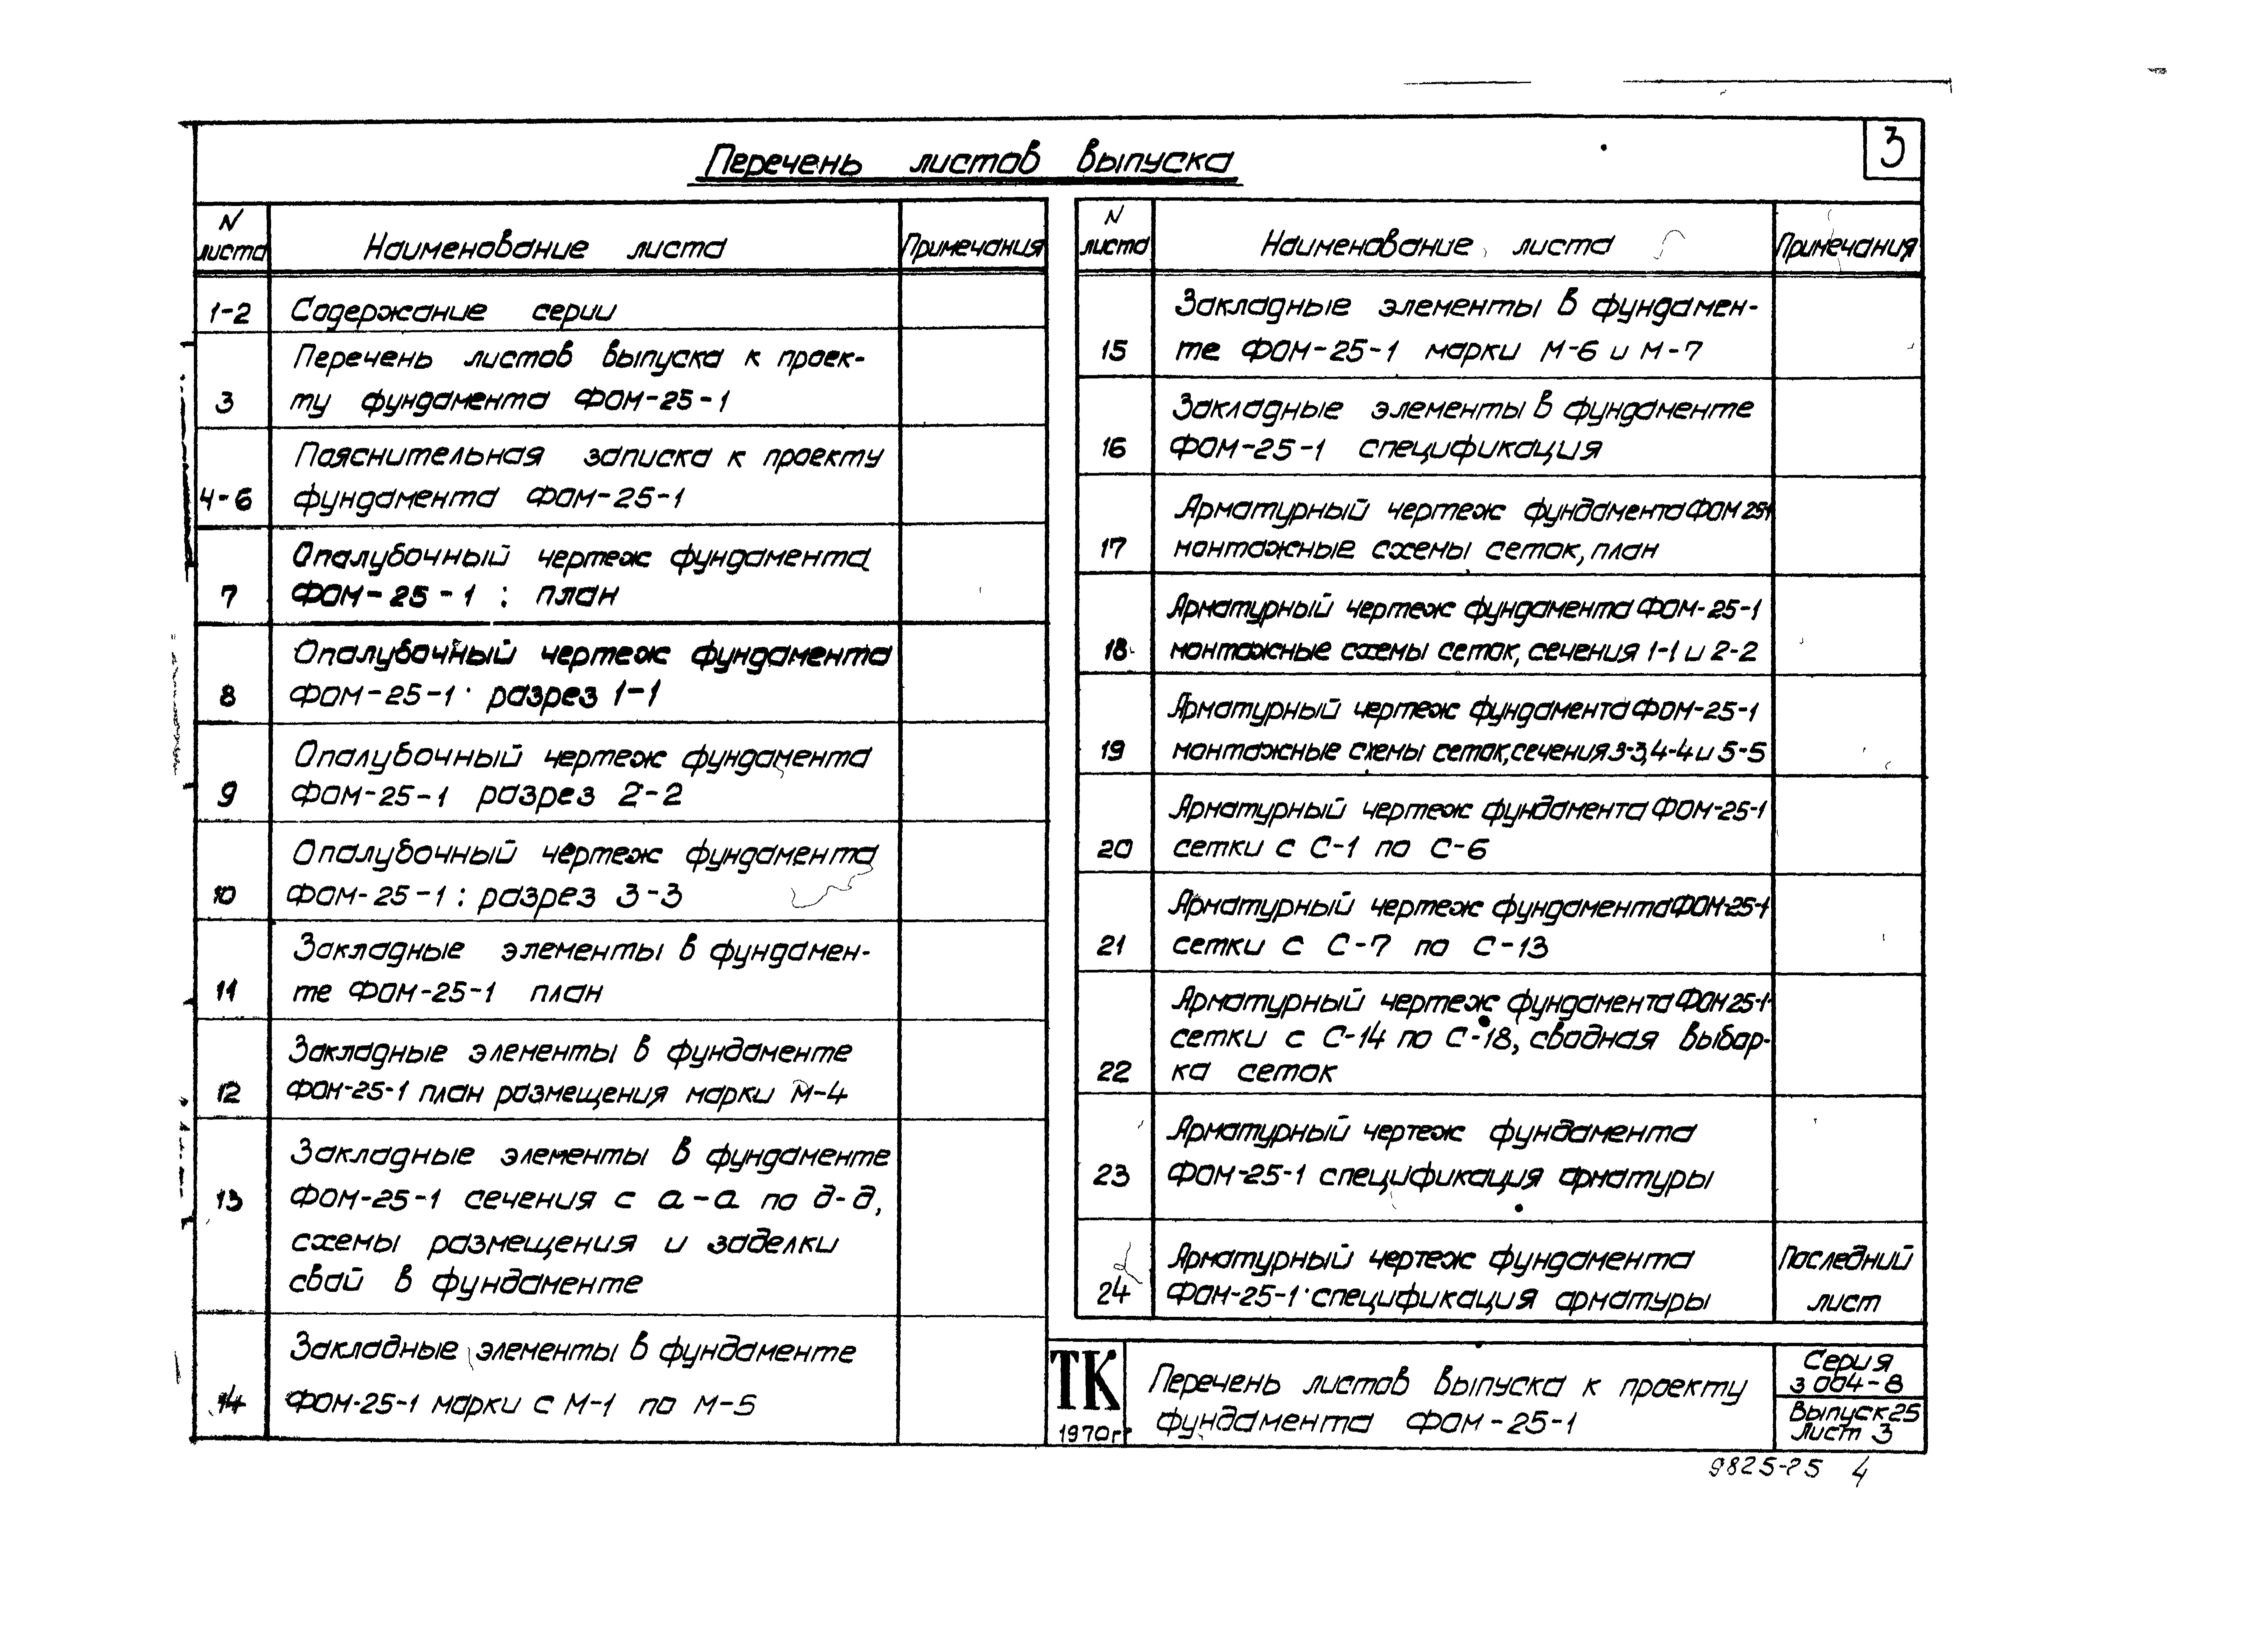 3
Перечень листов выпуска
N листа
Наименование листа
Примечания
1-2
Содержание серии
3
Перечень листов выпуска к проек-
ту фундамента ФОМ-25-1
4-6
Пояснительная записка к проекту
фундамента ФОМ-25-1
7
Опалубочный чертеж фундамента
ФОМ-25-1: план
8
Опалубочный чертеж фундамента
ФОМ-25-1· разрез 1-1
9
Опалубочный чертеж фундамента
ФОМ-25-1 разрез 2-2
10
Опалубочный чертеж фундамента
ФОМ-25-1: разрез 3-3
11
Закладные элементы в фундамен-
те ФОМ-25-1 план
12
Закладные элементы в фундаменте
ФОМ-25-1 план размещения марки М-4
13
Закладные элементы в фундаменте
ФОМ-25-1 сечения с а-а по д-д,
схемы размещения и заделки
свай в фундаменте
14
Закладные элементы в фундаменте
ФОМ-25-1 марки с М-1 по М-5
N листа
Наименование листа
Примечания
15
Закладные элементы в фундамен-
те ФОМ-25-1 марки М-6 и М-7
16
Закладные элементы в фундаменте
ФОМ-25-1 спецификация
17
Арматурный чертеж фундамента ФОМ 25-1
монтажные схемы сеток, план
18
Арматурный чертеж фундамента ФОМ-25-1
монтажные схемы сеток, сечения 1-1 и 2-2
19
Арматурный чертеж фундамента ФОМ-25-1
монтажные схемы сеток, сечения 3-3, 4-4 и 5-5
20
Арматурный чертеж фундамента ФОМ-25-1
сетки с С-1 по С-6
21
Арматурный чертеж фундамента ФОМ-25-1
сетки с С-7 по С-13
22
Арматурный чертеж фундамента ФОМ 25-1
сетки с С-14 по С-18, сводная выбор-
ка сеток
23
Арматурный чертеж фундамента
ФОМ-25-1 спецификация арматуры
24
Арматурный чертеж фундамента
ФОМ-25-1· спецификация арматуры
Последний
лист
ТК
1970г
Перечень листов выпуска к проекту
фундамента ФОМ-25-1
Серия
3 004-8
Выпуск 25
Лист 3
9825-25 4